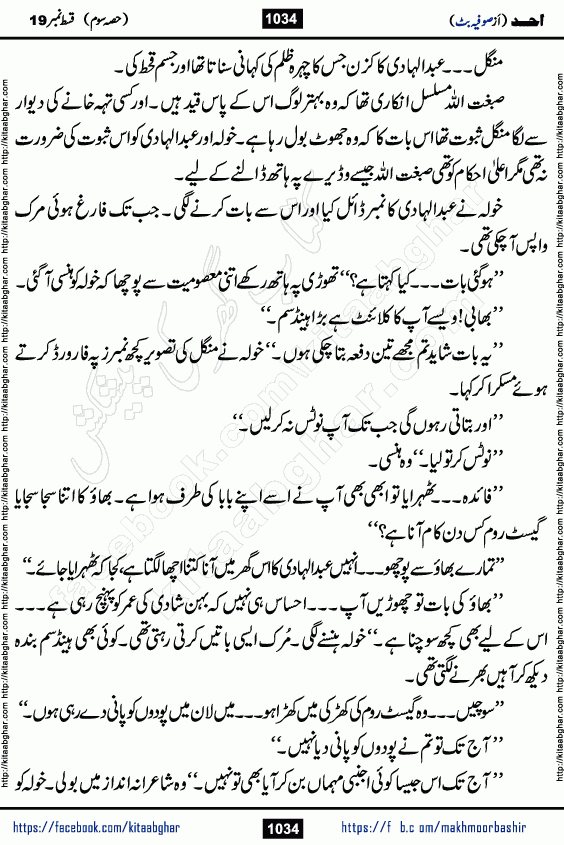 احد (از صوفیہ بٹ) 1034 (حصہ سوم) قسط نمبر 19
منگل ۔۔۔ عبدالہادی کا کزن جس کا چہرہ ظلم کی کہانی سناتا تھا اور جسم قحط کی۔
صبغت اللہ مسلسل انکاری تھا کہ وہ بہتر لوگ اس کے پاس قید ہیں۔ اور کسی تہہ خانے کی دیوار
سے لگا منگل ثبوت تھا اس بات کا کہ وہ جھوٹ بول رہا ہے۔ خولہ اور عبدالہادی کو اس ثبوت کی ضرورت
نہ تھی مگر اعلیٰ احکام کو تھی صبغت اللہ جیسے وڈیرے پہ ہاتھ ڈالنے کے لیے۔
خولہ نے عبدالہادی کا نمبر ڈائل کیا اور اس سے بات کرنے لگی۔ جب تک فارغ ہوئی مرک
واپس آ چکی تھی۔
’’ہو گئی بات ۔۔۔ کیا کہتا ہے؟‘‘ تھوڑی پہ ہاتھ رکھے اتنی معصومیت سے پوچھا کہ خولہ کو ہنسی آ گئی۔
’’بھابی! ویسے آپ کا کلائنٹ ہے بڑا ہینڈسم۔‘‘
’’یہ بات شاید تم مجھے تین دفعہ بتا چکی ہوں۔‘‘ خولہ نے منگل کی تصویر کچھ نمبرز پہ فارورڈ کرتے
ہوئے مسکرا کر کہا۔
’’اور بتاتی رہوں گی جب تک آپ نوٹس نہ کر لیں۔‘‘
’’نوٹس کر تو لیا۔‘‘ وہ ہنسی۔
’’فائدہ ۔۔۔ ٹھہرایا تو ابھی بھی آپ نے اسے اپنے بابا کی طرف ہوا ہے۔ بھاؤ کا اتنا سجا سجایا
گیسٹ روم کس دن کام آنا ہے؟‘‘
’’تمارے بھاؤ سے پوچھو ۔۔۔ انہیں عبدالہادی کا اس گھر میں آنا کتنا اچھا لگتا ہے، کجا کہ ٹھہرایا جائے۔‘‘
’’بھاؤ کی بات تو چھوڑیں آپ ۔۔۔ احساس ہی نہیں کہ بہن شادی کی عمر کو پہنچ رہی ہے ۔۔۔
اس کے لیے بھی کچھ سوچنا ہے۔‘‘ خولہ ہنسنے لگی۔ مُرک ایسی باتیں کرتی رہتی تھی۔ کوئی بھی ہینڈسم بندہ
دیکھ کر آہیں بھرنے لگتی تھی۔
’’سوچیں ۔۔۔ وہ گیسٹ روم کی کھڑکی میں کھڑا ہو ۔۔۔ میں لان میں پودوں کو پانی دے رہی ہوں۔‘‘
’’آج تک تو تم نے پودوں کو پانی دیا نہیں۔‘‘
’’آج تک اس جیسا کوئی اجنبی مہماں بن کر آیا بھی تو نہیں۔‘‘ وہ شاعرانہ انداز میں بولی۔ خولہ کو
https://facebook.com/kitaabghar 1034 https://f b.c om/makhmoorbashir
http://kitaabghar.com http://kitaabghar.com http://kitaabghar.com http://kitaabghar.com http://kitaabghar.com http://kitaabghar.com